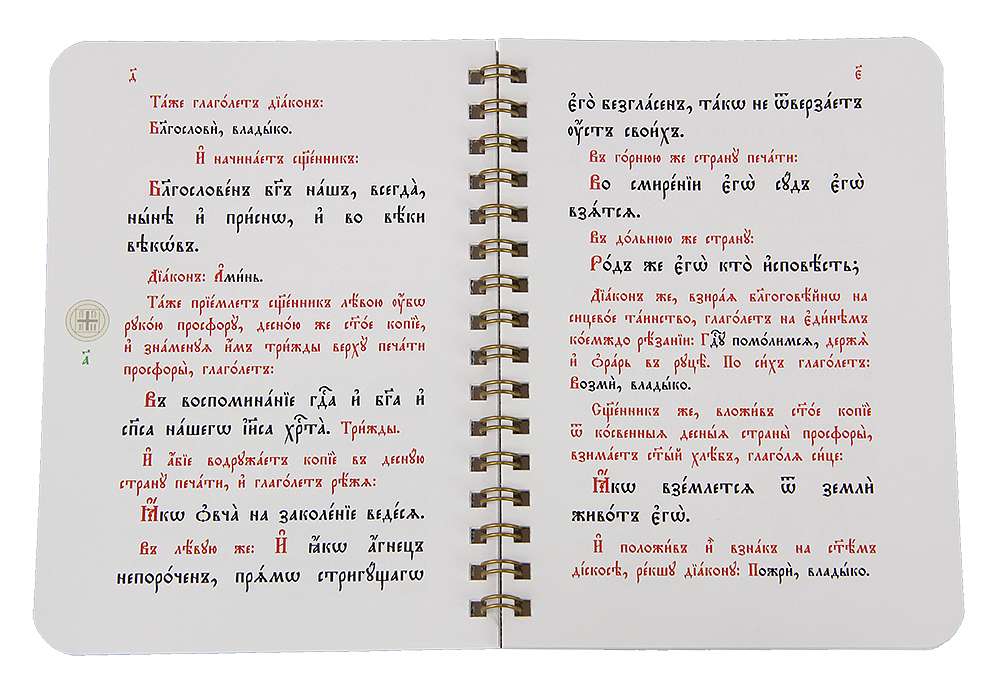 д҃
Та́же глаго́летъ дїа́конъ:
Бл҃гословѝ, влады́ко.
И҆ начина́етъ сщ҃е́нникъ:
Бл҃гослове́нъ бг҃ъ на́шъ, всегда̀,
ны́нѣ и҆ при́снѡ, и҆ во вѣ́ки
вѣкѡ́въ.
Дїа́конъ: А҆ми́нь.
Та́же прїе́млетъ сщ҃е́нникъ лѣ́вою ᲂу҆́бѡ
руко́ю просфорꙋ̀, десно́ю же ст҃о́е копїѐ,
и҆ зна́менꙋѧ и҆́мъ три́жды верхꙋ̀ печа́ти
просфоры̀, глаго́летъ:
Въ воспомина́нїе гдⷭ҇а и҆ бг҃а и҆
сп҃са на́шегѡ і҆и҃са хрⷭ҇та̀. Три́жды.
И҆ а҆́бїе водрꙋжа́етъ копїѐ въ деснꙋ́ю
странꙋ̀ печа́ти, и҆ глаго́летъ рѣ́жѧ:
Ꙗ҆́кѡ ѻ҆вча̀ на заколе́нїе веде́сѧ.
Въ лѣ́вꙋю же: И҆ ꙗ҆́кѡ а҆́гнецъ
непоро́ченъ, прѧ́мѡ стригꙋ́щагѡ
а҃
є҃
є҆го̀ безгла́сенъ, та́кѡ не ѿверза́етъ
ᲂу҆́стъ свои́хъ.
Въ го́рнюю же странꙋ̀ печа́ти:
Во смире́нїи є҆гѡ̀ сꙋ́дъ є҆гѡ̀
взѧ́тсѧ.
Въ до́льнюю же странꙋ̀:
Ро́дъ же є҆гѡ̀ кто̀ и҆сповѣ́сть;
Дїа́конъ же, взира́ѧ бл҃гоговѣ́йнѡ на
сицево́е та́инство, глаго́летъ на є҆ди́нѣмъ
ко́емждо рѣ́занїи: Гдⷭ҇ꙋ помо́лимсѧ, держѧ̀
и҆ ѻ҆ра́рь въ рꙋцѣ̀. По си́хъ глаго́летъ:
Возмѝ, влады́ко.
Сщ҃е́нникъ же, вложи́въ ст҃о́е копїѐ
ѿ ко́свенныѧ десны́ѧ страны̀ просфоры̀,
взима́етъ ст҃ы́й хлѣ́бъ, глаго́лѧ си́це:
Ꙗ҆́кѡ взе́млетсѧ ѿ землѝ
живо́тъ є҆гѡ̀.
И҆ положи́въ и҆̀ взна́къ на ст҃ѣ́мъ
ді́скосѣ, ре́кшꙋ дїа́конꙋ: Пожрѝ, влады́ко.